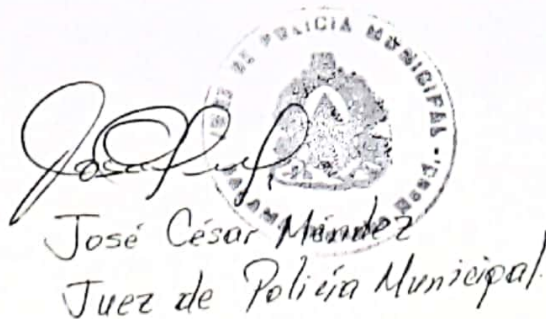 DE POLICIA MUNICIPAL
José César Méndez
Juez de Policía Municipal.